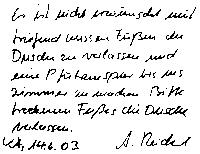 Es ist nicht erwünscht mit
triefend nassen Füßen die
Dusche zu verlassen und
eine Pfützenspur bis ins
Zimmer zu machen Bitte
trockenen Fußes die Dusche
verlassen.
14.6.03 A. Reichel